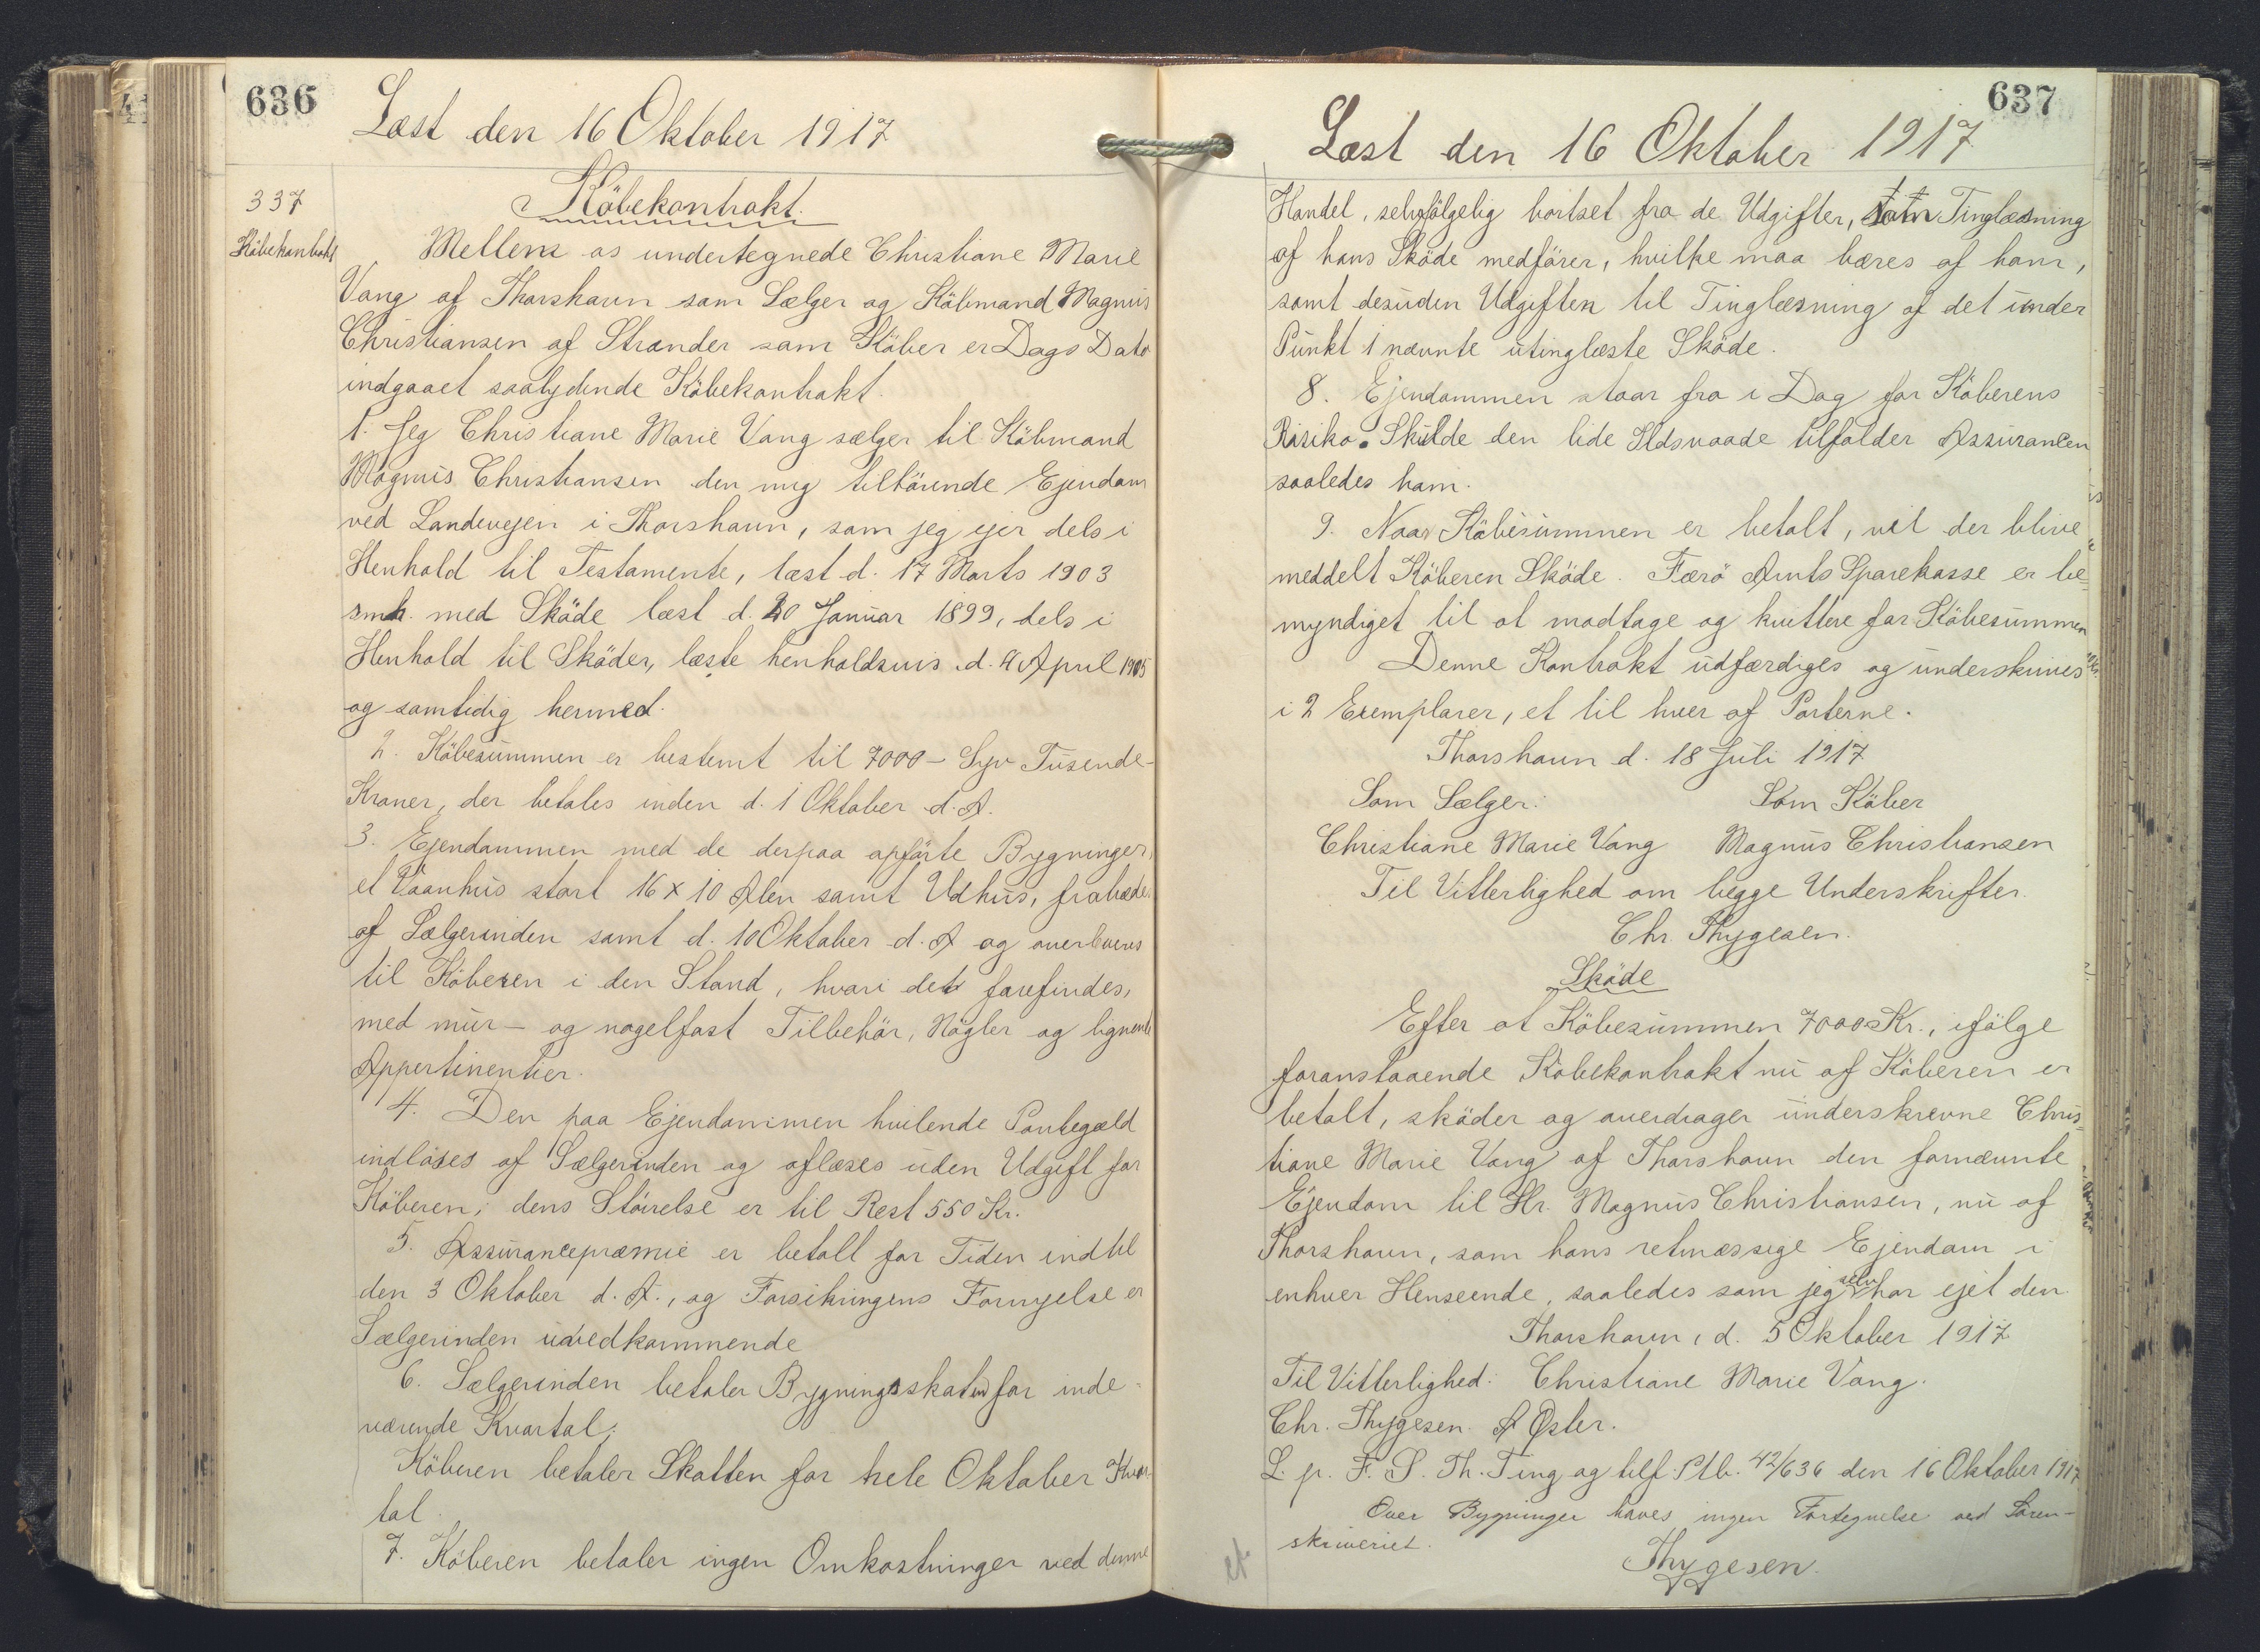 636
Læst den 16 Oktober 1917
337
Köbekontrakt
Köbekontrakt.
Mellem os undertegnede Christiane Marie
Vang af Thorshavn som Sælger og Köbmand Magnus
Christiansen af Strænder som Köber er Dags Dato
indgaaet saalydende Köbekontrakt.
1. Jeg Christiane Marie Vang sælger til Köbmand
Magnus Christiansen den mig tilhörende Ejendom
ved Landevejen i Thorshavn, som jeg ejer dels i
Henhold til Testamente, læst d. 17 Marts 1903
smh. med Sköde læst d. 20 Januar 1899, dels i
Henhold til Sköder, læste henholdsvis d. 4 April 1905
og samtidig hermed.
2. Köbesummen er bestemt til 7000 - Syv Tusende -
Kroner, der betales inden d. 1 Oktober d. A.
3. Ejendommen med de derpaa opförte Bygninger,
et Vaanhus stort 16 x 10 Alen samt Udhus, fratrædes
af Sælgerinden samt d. 10 Oktober d. A og overleveres
til Köberen i den Stand, hvori det forefindes,
med mur- og nagelfast Tilbehör, Nögler og lignende
Appertinentier.
4. Den paa Ejendommen hvilende Pantegæld
indlöses af Sælgerinden og aflæses uden Udgift for
Köberen; dens Störrelse er til Rest 550 Kr.
5. Assurancepræmie er betalt for Tiden indtil
den 3 Oktober d. A., og Forsikringens Fornyelse er
Sælgerinden uvedkommende
6. Sælgerinden betaler Bygningsskatten for inde-
værende Kvartal;
Köberen betaler Skatten for hele Oktober Kvar-
tal.
7. Köberen betaler ingen Omkostninger ved denne
637
Læst den 16 Oktober 1917
Handel, selvfölgelig bortset fra de Udgifter, som Tinglæsning
af hans Sköde medförer, hvilke maa bæres af ham,
samt desuden Udgiften til Tinglæsning af det under
Punkt 1 nævnte utinglæste Sköde.
8. Ejendommen staar fra i Dag for Köberens
Risiko. Skulde den lide Ildsvaade tilfalder Assurancen
saaledes ham.
9. Naar Köbesummen er betalt, vil der blive
meddelt Köberen Sköde. Færö Amts Sparekasse er be-
myndiget til at modtage og kvittere for Köbesummen
Denne Kontrakt udfærdiges og underskrives
i 2 Exemplarer, et til hver af Parterne.
Thorshavn d. 18 Juli 1917
Som Sælger: Som Köber
Christiane Marie Vang Magnus Christiansen
Til Vitterlighed om begge Underskrifter.
Chr. Thygesen.
Sköde
Efter at Köbesummen 7000 Kr., ifölge
foranstaaende Köbekontrakt nu af Köberen er
betalt, sköder og overdrager underskrevne Chris-
tiane Marie Vang af Thorshavn den fornævnte
Ejendom til Hr. Magnus Christiansen, nu af
Thorshavn, som hans retmæssige Ejendom i
enhver Henseende, saaledes som jeg selv har ejet den
Thorshavn, d. 5 Oktober 1917
Til Vitterlighed: Christiane Marie Vang.
Chr. Thygesen. A Øster.
L. p. F. S. Th. Ting og tilf. Ptb. 42/636 den 16 Oktober 1917
Over Bygninger haves ingen Fortegnelse ved Soren-
skriveriet.
Thygesen.